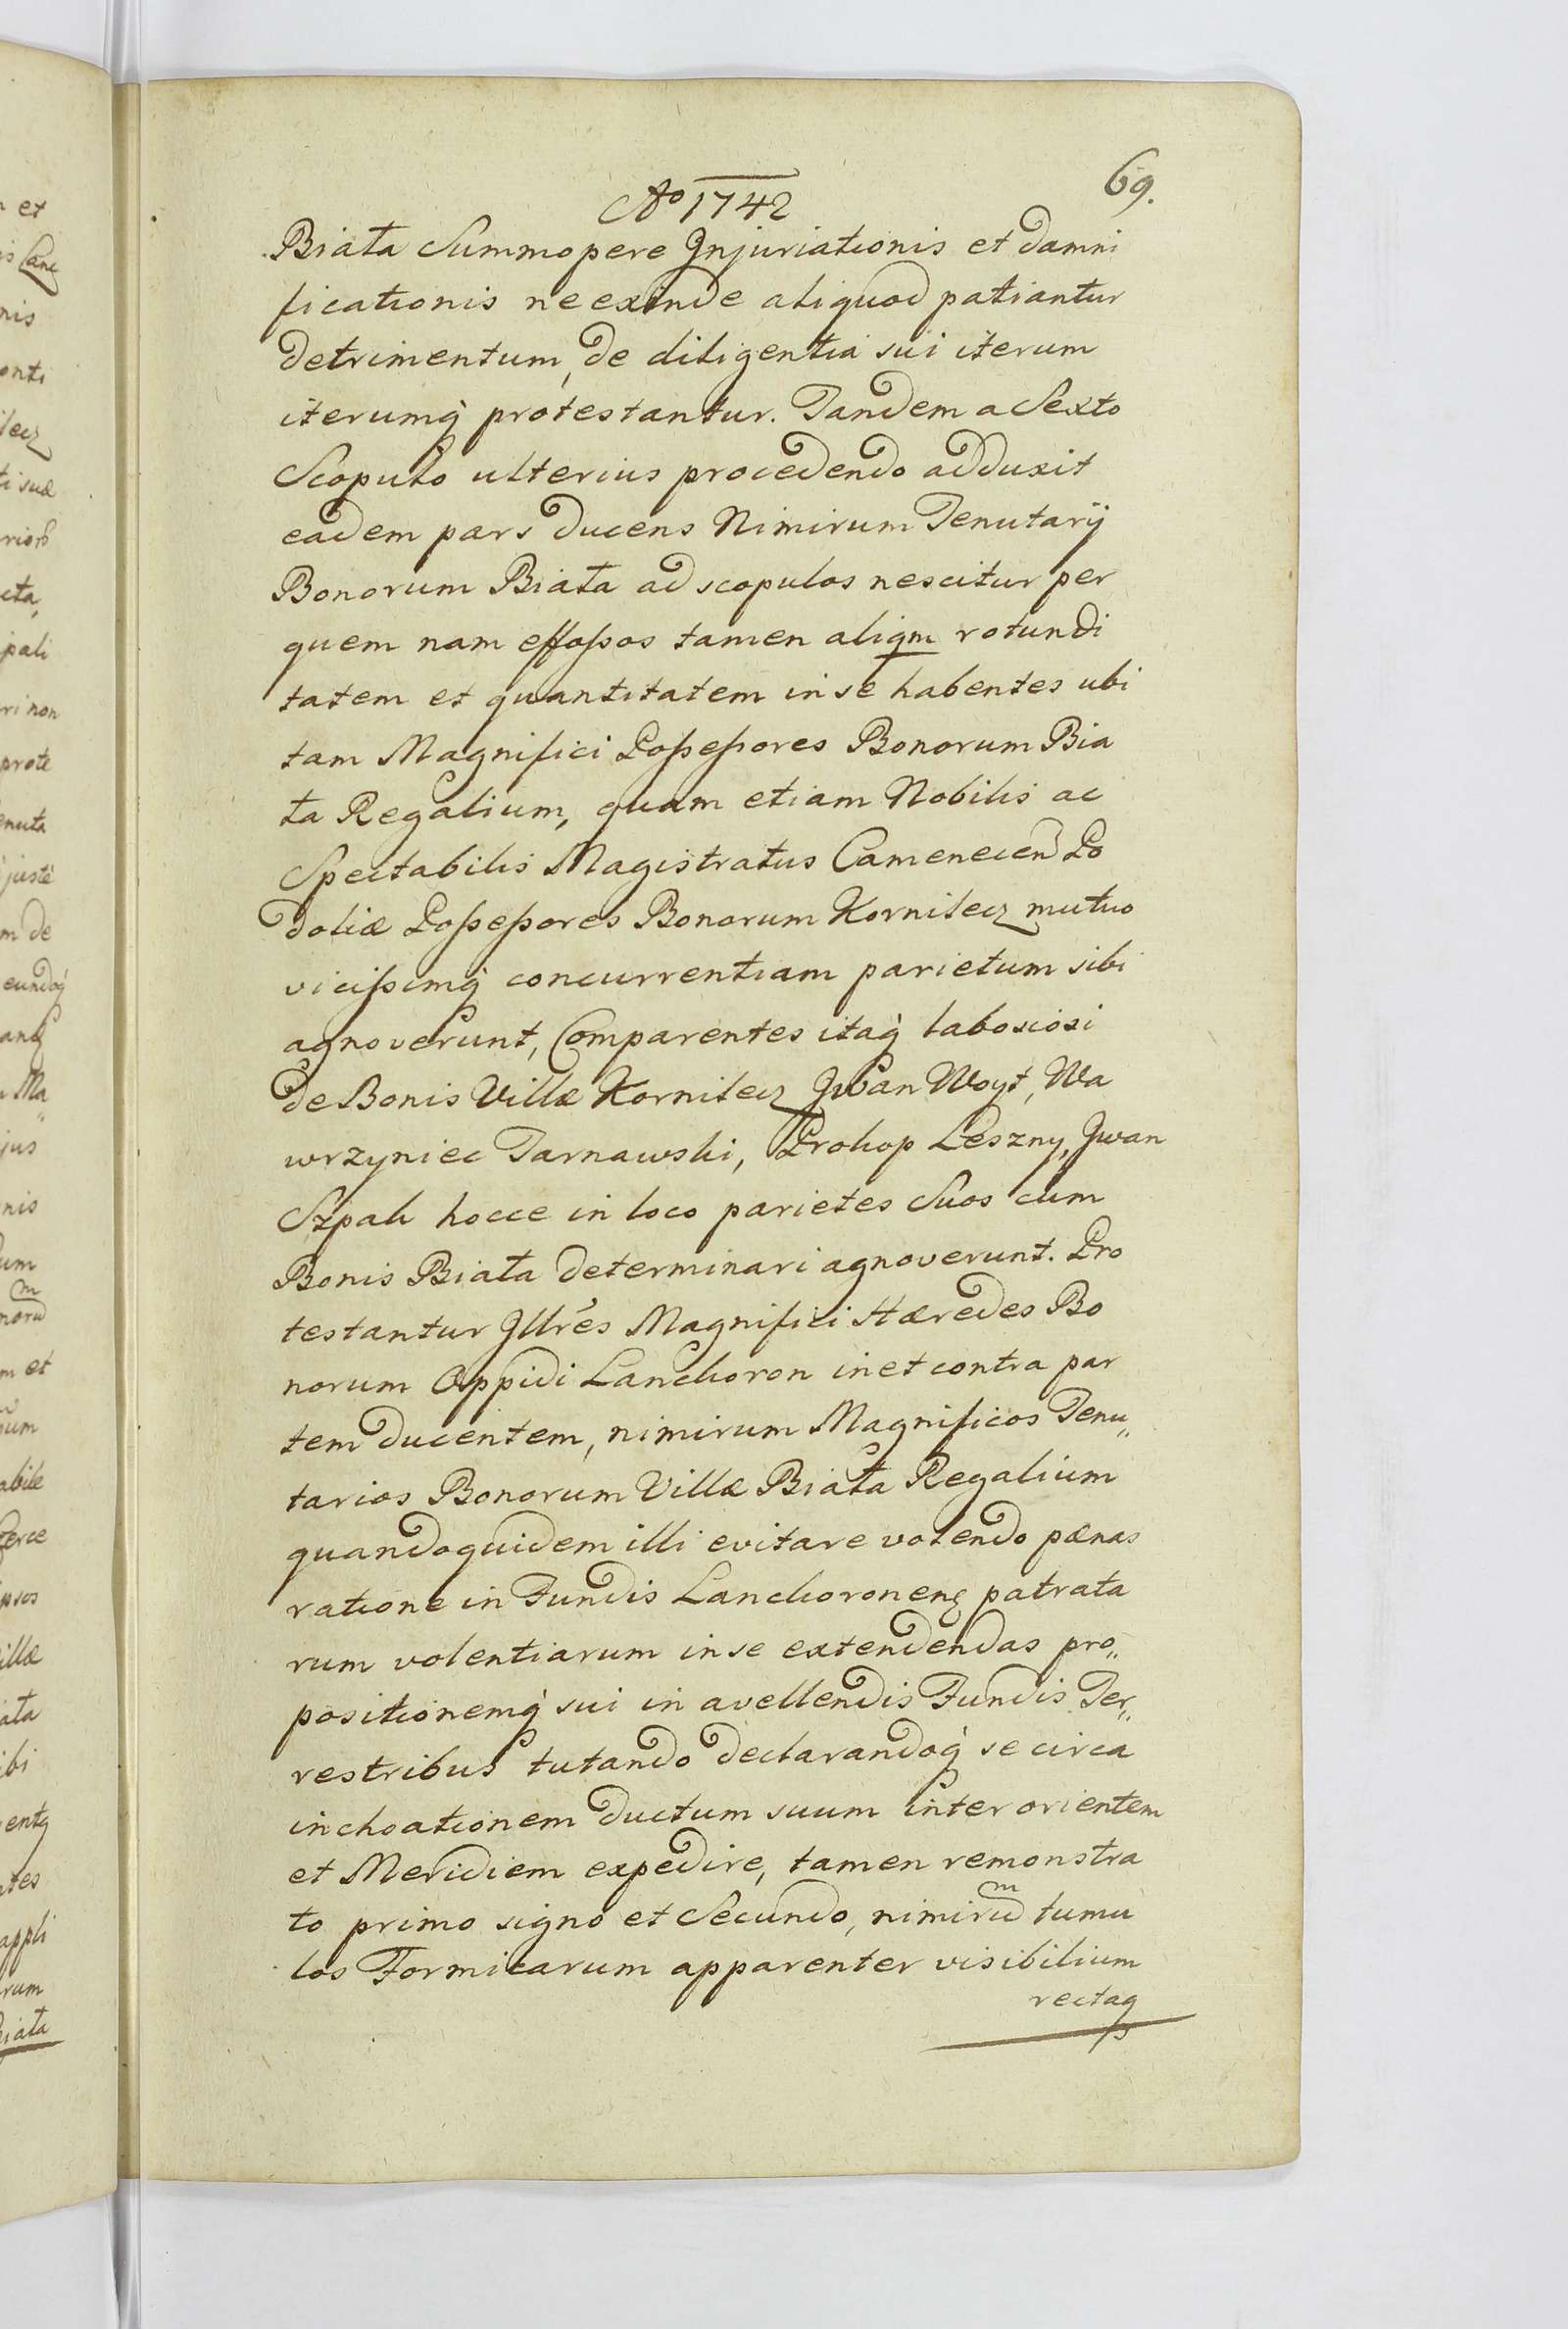 69.
Ao 1742
Biała Summopere Injuriationis et damni
ficationis ne exinde aliquod patiantur
detrimentum, de diligentia sui iterum
iterumq̀ protestantur. Tandem a Sexto
Scopulo ulterius procedendo adduxit
eadem pars ducens Nimirum Tenutarij
Bonorum Biała ad scopulos nescitur per
quem nam effossos tamen aliqm rotundi
tatem et quantitatem in se habentes ubi
tam Magnifici Possessores Bonorum Bia
ła Regalium, quam etiam Nobilis ac
Spectabilis Magistratus Camenecen Po
doliæ Possessores Bonorum Kornilecz mutuo
vicissimq̀ concurrentiam parietum sibi
agnoverunt, Comparentes itaq̀ laboriosi
de Bonis Villæ Kornilecz Jwan Woyt, Wa
wrzyniec Tarnawski, Prokop Leszny, Jwan
Szpak hocce in loco parietes Suos cum
Bonis Biała determinari agnoverunt. Pro
testantur Jllrés Magnifici Hæredes Bo
norum Oppidi Lanckoron in et contra par
tem ducentem, nimirum Magnificos Tenu„
tarios Bonorum Villæ Biała Regalium
quandoquidem illi evitare volendo pænas
ratione in Fundis Lanckoronens patrata
rum volentiarum in se extendendas pro„
positionemq̀ sui in avellendis Fundis Ter„
restribus tutando declarandoq̀ se circa
inchoationem ductum suum inter orientem
et Meridiem expedire, tamen remonstra
to primo signo et Secundo, nimirum tumu
los Formicarum apparenter visibilium
rectaq
et
nis
onti
lecz
ti suæ
cta,
pali
ri non
prote
enuta
justè
m de
eundoq̀
Ma
jus
nis
um
m et
abile
pros
illæ
ata
ibi
tes
appli
rum
Biała